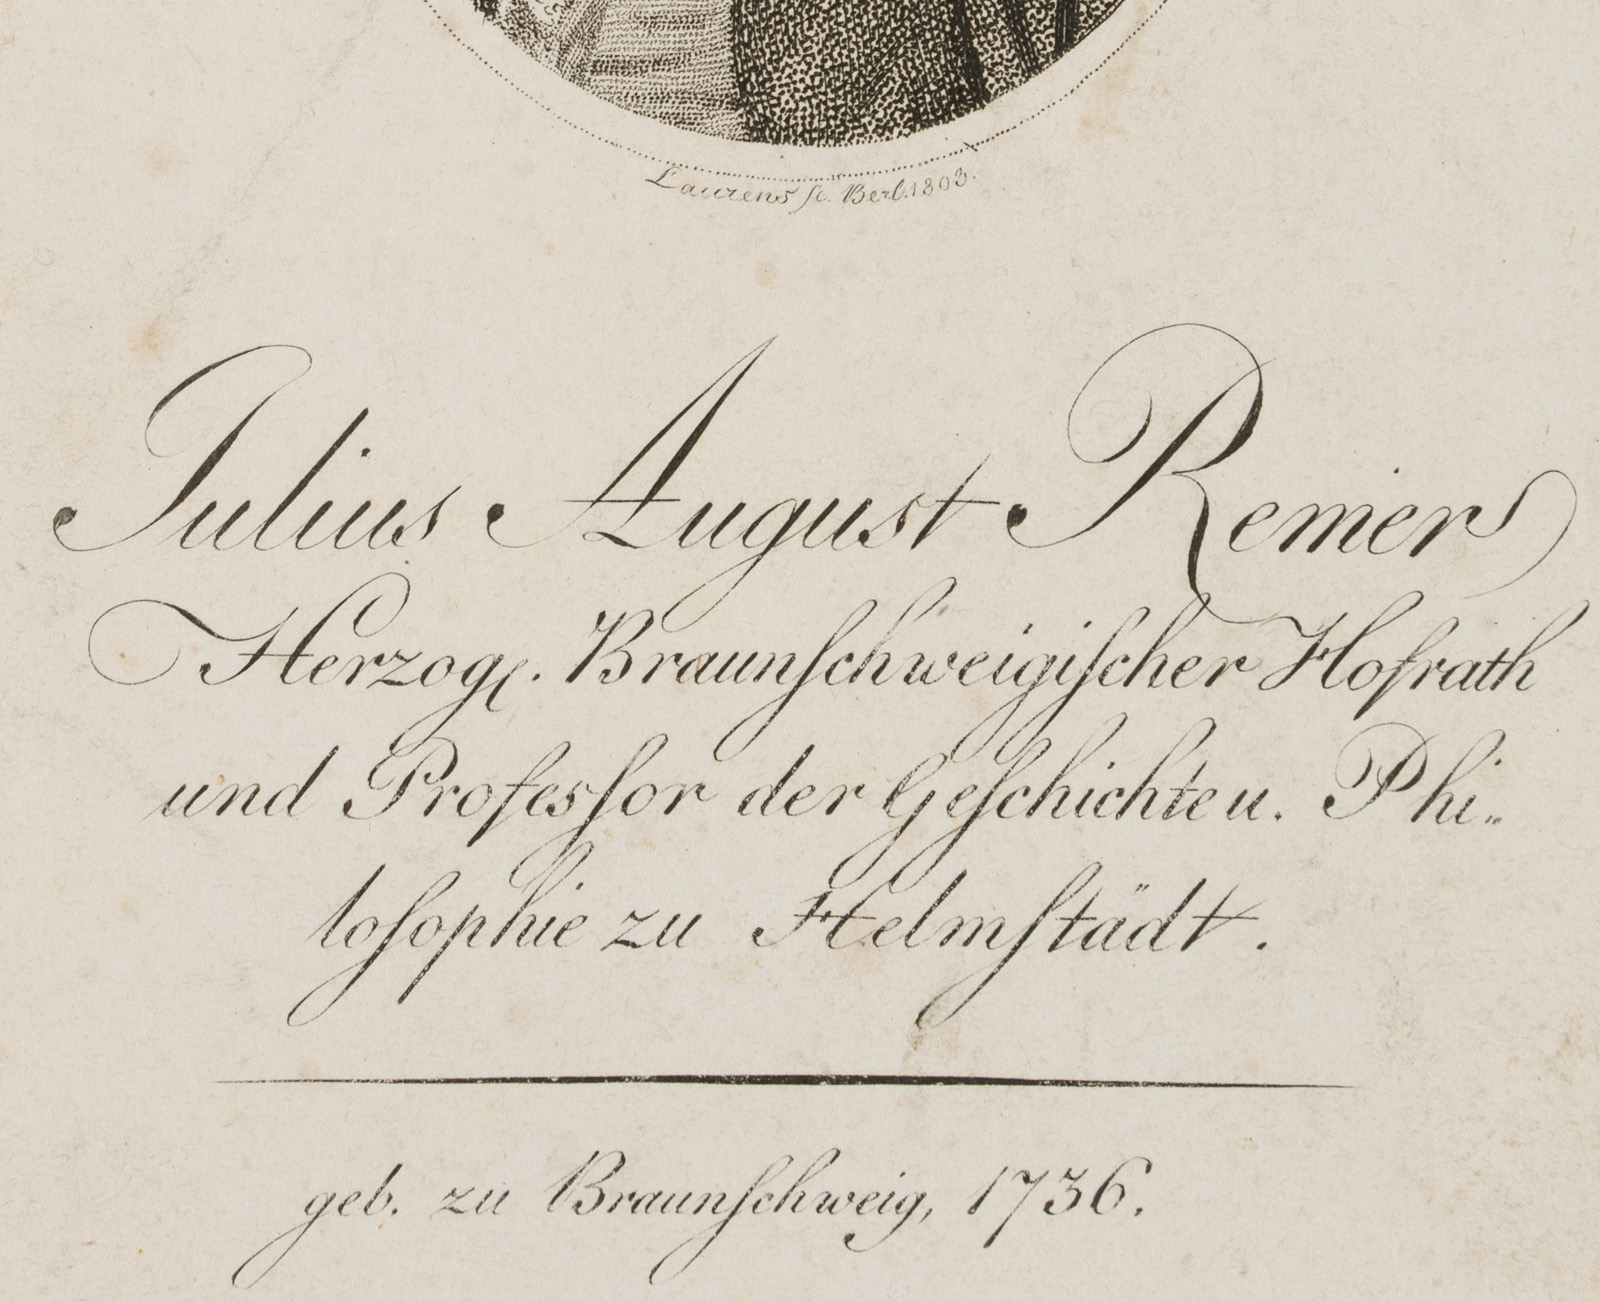 Laurens sc. Berl. 1803.
Julius August Remers
Herzogl. Braunſchweigiſcher Hofrath
und Profesſor der Geſchichte u. Phi„
loſophie zu Helmſtädt.
geb. zu Braunſchweig, 1736.